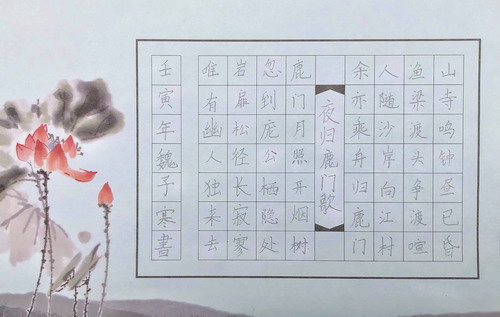 山寺鸣钟昼已昏
渔梁渡头争渡喧
人随沙岸向江村
余亦乘舟归鹿门
夜归鹿门歌
鹿门月照开烟树
忽到庞公栖隐处
岩扉松径长寂寥
唯有幽人独来去
壬寅年魏子寒書